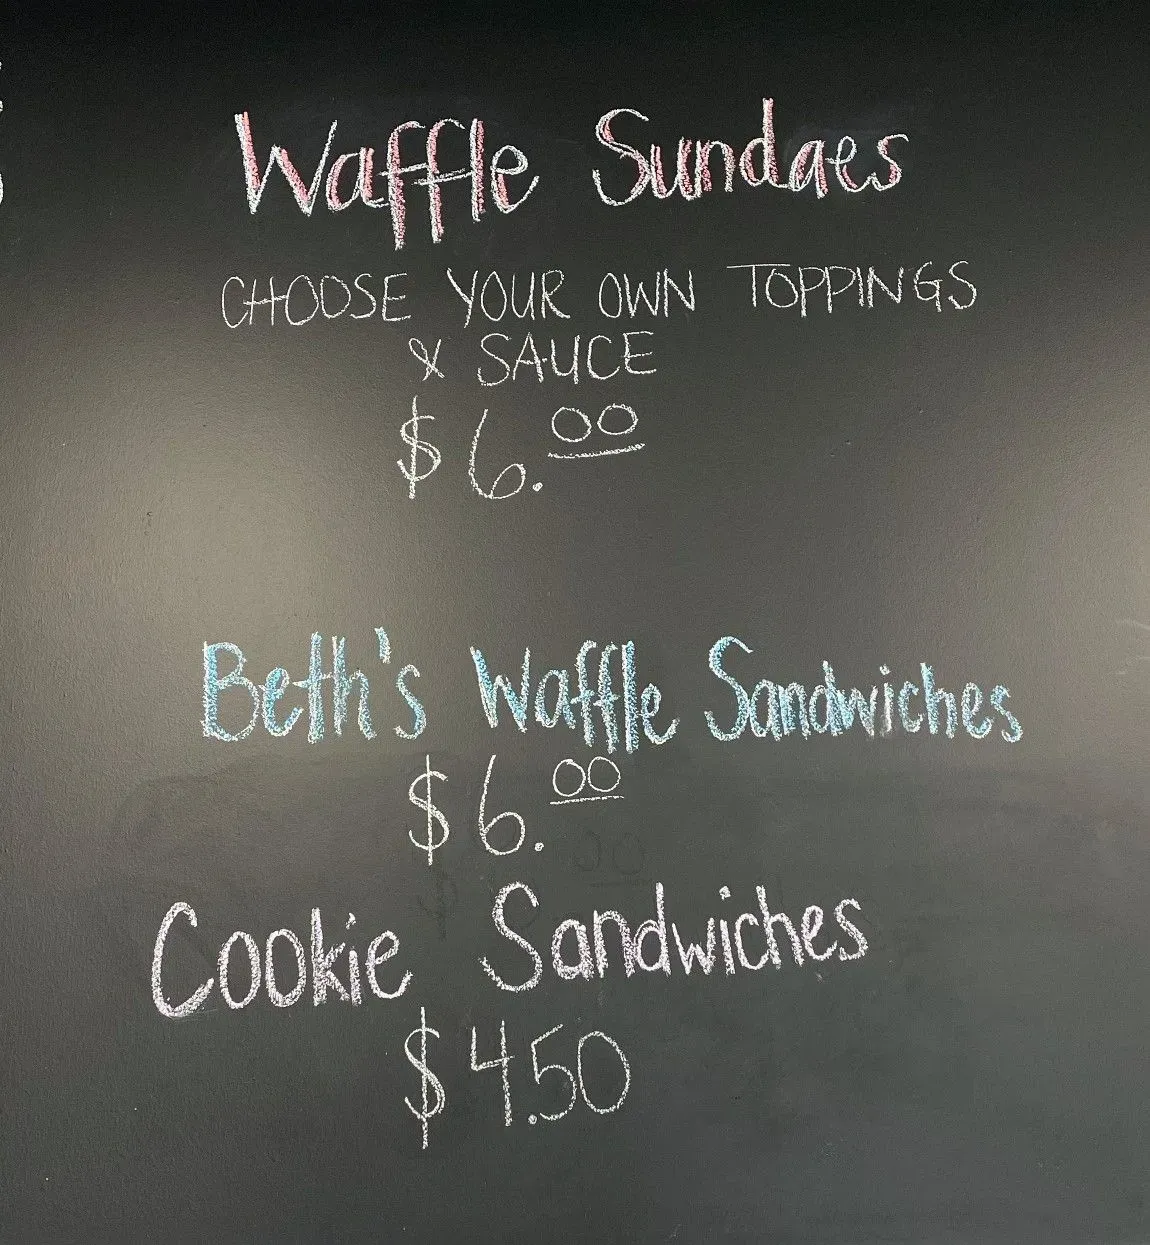 Waffle Sundaes
CHOOSE YOUR OWN TOPPINGS
& SAUCE
$6.00
Beth's Waffle Sandwiches
$6.00
Cookie Sandwiches
$4.50